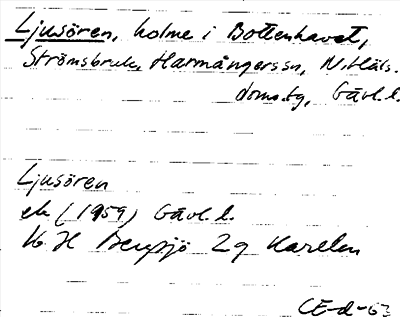 Ljusören, holme i Bottenhavet,
Strömsbruk, Harmångerssn, N. Häls.
doms.tg, Gävl.l.
Ljusören
ek (1959) Gävl. l.
16 H Bergsjö 2g Karelen
CE-d-63